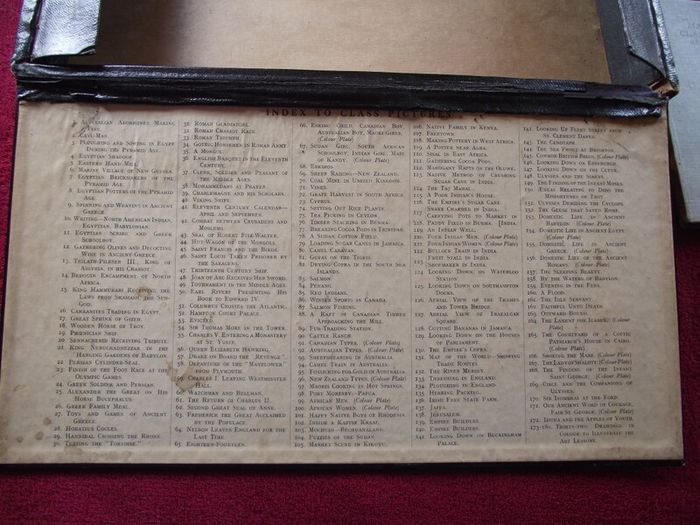 INDEX TO CLASS PICTURES
Australian Aborigines Making
Fire.
2. Cave-Man.
3. Ploughing and Sowing in Egypt
During the Pyramid Age.
4. Egyptian Shadoof.
5. Eastern Hand-Mill.
6. Marine Village of New Guinea.
7. Egyptian Brickmakers of the
Pyramid Age.
8. Egyptian Potters of the Pyramid
Age.
9. Spinning and Weaving in Ancient
Greece.
10. Writing—North American Indian,
Egyptian, Babylonian.
11. Egyptian Scribe and Greek
Schoolboy.
12. Gathering Olives and Decoting
Wine in Ancient Greece.
13. Tiglath-Pileser III., King of
Assyria, in his Chariot.
14. Bedouin Encampment, North
Africa.
15. King Hammurabi Receiving the
Laws from Shamash, the Sun-
God.
16. Canaanites Trading in Egypt.
17. Great Sphinx of Gizeh.
18. Wooden Horse of Troy.
19. Phœnician Ship.
20. Sennacherib Receiving Tribute.
21. King Nebuchadnezzar in the
Hanging Gardens of Babylon.
22. Persian Cylinder-Seal.
23. Finish of the Foot Race at the
Olympic Games.
24. Greek Soldier and Persian.
25. Alexander the Great on His
Horse Bucephalus.
26. Greek Family Meal.
27. Toys and Games of Ancient
Greece.
28. Horatius Cocles.
29. Hannibal Crossing the Rhone.
30. Testing the "Tortoise."
31. Roman Gladiators.
32. Roman Chariot Race.
33. Roman Triumph.
34. Gothic Horsemen in Roman Army.
35. A Mongol.
36. English Banquet in the Eleventh
Century.
37. Cleric, Soldier and Peasant of
the Middle Ages.
38. Mohammedans at Prayer.
39. Charlemagne and his Scholars.
40. Viking Ships.
41. Eleventh Century Calendar—
April and September.
42. Combat Between Crusaders and
Moslems.
43. Seal of Robert Fitz-Walter.
44. Hut-Wagon of the Mongols.
45. Saint Francis and the Birds.
46. Saint Louis Taken Prisoner by
the Saracens.
47. Thirteenth Century Ship.
48. Joan of Arc Receives Her Sword.
49. Tournament in the Middle Ages.
50. Earl Rivers Presenting His
Book to Edward IV.
51. Columbus Crosses the Atlantic.
52. Hampton Court Palace.
53. Knight.
54. Sir Thomas More in the Tower.
55. Charles V. Entering a Monastery
at St. Yuste.
56. Queen Elizabeth Hawking.
57. Drake on Board the "Revenge."
58. Departure of the "Mayflower"
from Plymouth.
59. Charles I. Leaving Westminster
Hall.
60. Watchman and Bellman.
61. The Return of Charles II.
62. Second Great Seal of Anne.
63. Frederick the Great Acclaimed
by the Populace.
64. Nelson Leaves England for the
Last Time.
65. Eighteen-Fourteen.
66. Eskimo Girl, Canadian Boy,
Australian Boy, Maori Girls.
(Colour Plate)
67. Sudan Girl, South African
Schoolboy, Indian Girl, Man
of Kandy. (Colour Plate)
68. Eskimos.
69. Sheep Raising—New Zealand.
70. Coal Mine in United Kingdom.
71. Vines.
72. Grape Harvest in South Africa
73. Cyprus.
74. Setting Out Rice Plants.
75. Tea Picking in Ceylon.
76. Timber Stacking in Burma.
77. Breaking Cocoa Pods in Trinidad.
78. A Sudan Cotton Field.
79. Loading Sugar Canes in Jamaica.
80. Camel Caravan.
81. Guyas on the Tigris.
82. Drying Copra in the South Sea
Islands.
83. Salmon
84. Penang.
85. Red Indians.
86. Winter Sports in Canada
87. Salmon Fishing.
88. A Raft of Canadian Timber
Approaching the Mill.
89. Fur-Trading Station.
90. Cattle Ranch.
91. Canadian Types. (Colour Plate)
92. Australian Types. (Colour Plate)
93. Sheepshearing in Australia.
94. Camel Train in Australia.
95. Fishing in the Pacific Islands.
96. New Zealand Types. (Colour Plate)
97. Maoris Cooking in Hot Springs.
98. Port Moresby—Papua
99. African Men. (Colour Plate)
100. African Women. (Colour Plate)
101. Happy Native Boys of Rhodesia
102. Inside a Kaffir Kraal.
103. Mochudi—Bechuanaland.
104. Fuzzies of the Sudan
105. Market Scene in Kikuyu.
106. Native Family in Kenya.
107. Freetown.
108. Making Pottery in West Africa.
109. A Potter near Aden.
110. Sisal in East Africa.
111. Gathering Cocoa Pods.
112. Mahogany Rafts on the Ologwe.
113. Native Method of Crushing
Sugar Cane in India.
114. The Taj Mahal.
115. A Poor Indian's House.
116. The Empire's Sugar Cane
Snake Charmer in India.
117. Carrying Pots to Market in
118. Paddy Field in India.
119. An Indian Well.
120. Four Indian Men. (Colour Plate)
121. Four Indian Women. (Colour Plate)
122. Bullock Train in India.
Fruit Stall in India.
123. Shoemaker in India.
124. Looking Down on Waterloo
Station.
125. Looking Down on Southampton
Docks.
126. Aerial View of the Thames
and Tower Bridge.
127. Aerial View of Trafalgar
Square.
128. Cutting Bananas in Jamaica.
129. Looking Down on the Houses
of Parliament.
130. The Empire's Coffee
131. Map of the World—Showing
Trade Routes.
132. The River Mersey.
133. Threshing in England.
134. Ploughing in England.
135. Hearing Packed.
136. Irish Free State Farm.
137. Jaffa.
138. Jerusalem.
139. Empire Builders.
140. Empire Builders.
141. Looking Down on Buckingham
Palace.
142. Looking Up Fleet Street from
St. Clement Danes.
143. The Cenotaph.
144. The Sea Front at Brighton.
145. London Bridge Burnt. (Colour Plate)
146. Looking Down on Edinburgh.
147. Looking Down on the Clyde.
148. Ulysses and the Sirens.
149. The Finding of the Infant Moses.
150. Exiles Relating to Dido the
Misfortunes of Troy.
151. Ulysses Deriding the Cyclops.
152. The Geese that Saved Rome.
153. Domestic Life in Ancient
Babylon. (Colour Plate)
154. Domestic Life in Ancient Egypt.
(Colour Plate)
155. Domestic Life in Ancient
Greece. (Colour Plate)
156. Domestic Life of the Ancient
Romans. (Colour Plate)
157. The Sleeping Beauty.
158. By the Waters of Babylon.
159. Evening in the Fens.
160. A Flood.
161. The Idle Servant.
162. Faithful Unto Death.
163. Outward Bound.
164. The Lament for Icarus.
(Colour Plate)
165. The Courtyard of a Coptic
Patriarch's House in Cairo.
(Colour Plate)
166. Shoeing the Mare. (Colour Plate)
167. The Lady of Shalott. (Colour Plate)
168. The Finding of the Infant
Saint George. (Colour Plate)
169. Girls and the Companions of
Ulysses.
170. Sir Isumbras at the Ford.
171. One Ancient Word in Courage,
Fair St. George. (Colour Plate)
172. Iduna and the Apples of Youth.
173-180. Thirty-Two Drawings in
Colour to Illustrate the
Art Lessons.